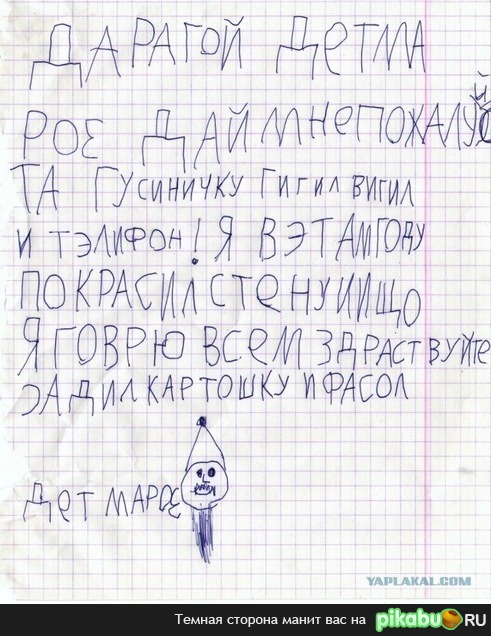 ДАРАГОЙ ДЕТМА
РОЕ ДАЙ МНЕ ПОЖАЛУЙ
ТА ГУСИНИЧКУ ГИГИЛ ВИГИЛ
И ТЭЛИФОН! Я В ЭТАМ ГОДУ
ПОКРАСИЛ СТЕНУ ИИЩО
Я ГОВРЮ ВСЕМ ЗДРАСТВУЙТЕ
ЭАДИЛ КАРТОШКУ И ФАСОЛ
ДЕТ МАРОЕ
YAPLAKAL.COM
Темная сторона манит вас на pikabu.RU